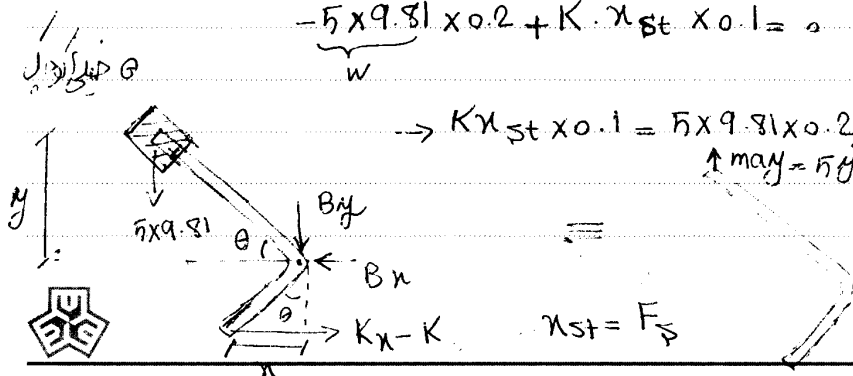 -5×9.81×0.2 + K·x_st × 0.1 = 0
W
→ Kx_st × 0.1 = 5×9.81×0.2
↑ may = 5ÿ
y
5×9.81
By
θ
Bx
θ
Kx - K
x_st = F_s
x